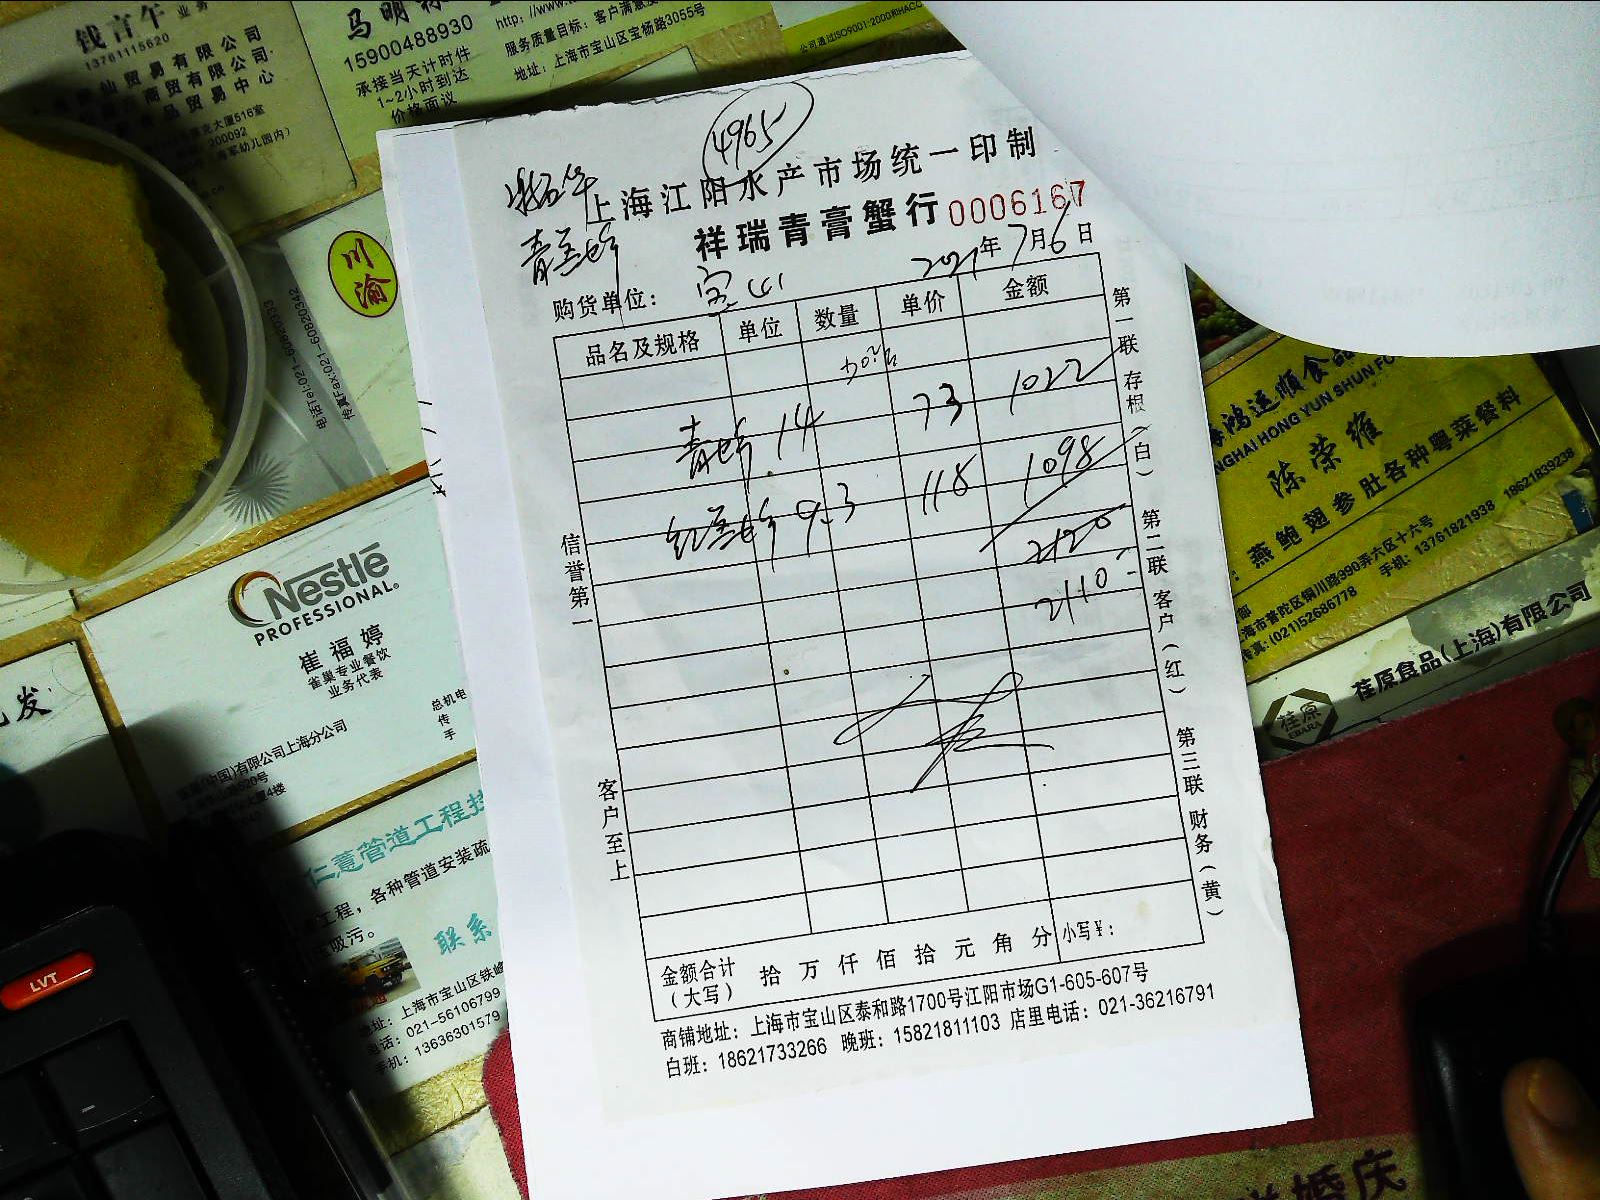 4965
上海江阳水产市场统一印制
祥瑞青膏蟹行 0006167
2021年7月6日
购货单位： 宝山
品名及规格 单位 数量 单价 金额
14 73 1022
9.3 118 1098
2120
2110
信誉第一
客户至上
第一联 存根（白） 第二联 客户（红） 第三联 财务（黄）
金额合计（大写） 拾 万 仟 佰 拾 元 角 分 小写¥：
商铺地址：上海市宝山区泰和路1700号江阳市场G1-605-607号
白班：18621733266 晚班：15821811103 店里电话：021-36216791
钱言午 业务
13761115620
贸易有限公司
商贸有限公司
品贸易中心
克大厦516室
200092
海军幼儿园内）
马明
15900488930
承接当天计时件
1~2小时到达
价格面议
http://www.
服务质量目标：客户满意度
地址：上海市宝山区宝杨路3055号
公司通过ISO9001-2000和HACC
川渝
电话Tel:021-60820333
传真Fax:021-60820342
Nestlé
PROFESSIONAL®
崔福婷
雀巢专业餐饮
业务代表
总机电
传
手
(中国)有限公司上海分公司
620号
大厦4楼
发
仁薏管道工程技
工程，各种管道安装疏
吸污。
联系
地址：上海市宝山区铁峰
电话：021-56106799
手机：13636301579
LVT
海鸿运顺食品
NGHAI HONG YUN SHUN FO
陈荣雍
燕鲍翅参肚各种粤菜餐料
上海市普陀区铜川路990弄六区十六号
传真：(021)52686778
手机：13761821938 18621839238
荏原
EBARA
荏原食品(上海)有限公司
婚庆